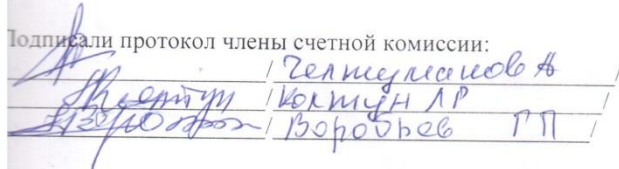 Подписали протокол члены счетной комиссии:
/ Челтуманов А /
/ Колтун ЛР /
/ Воробьев ГП /